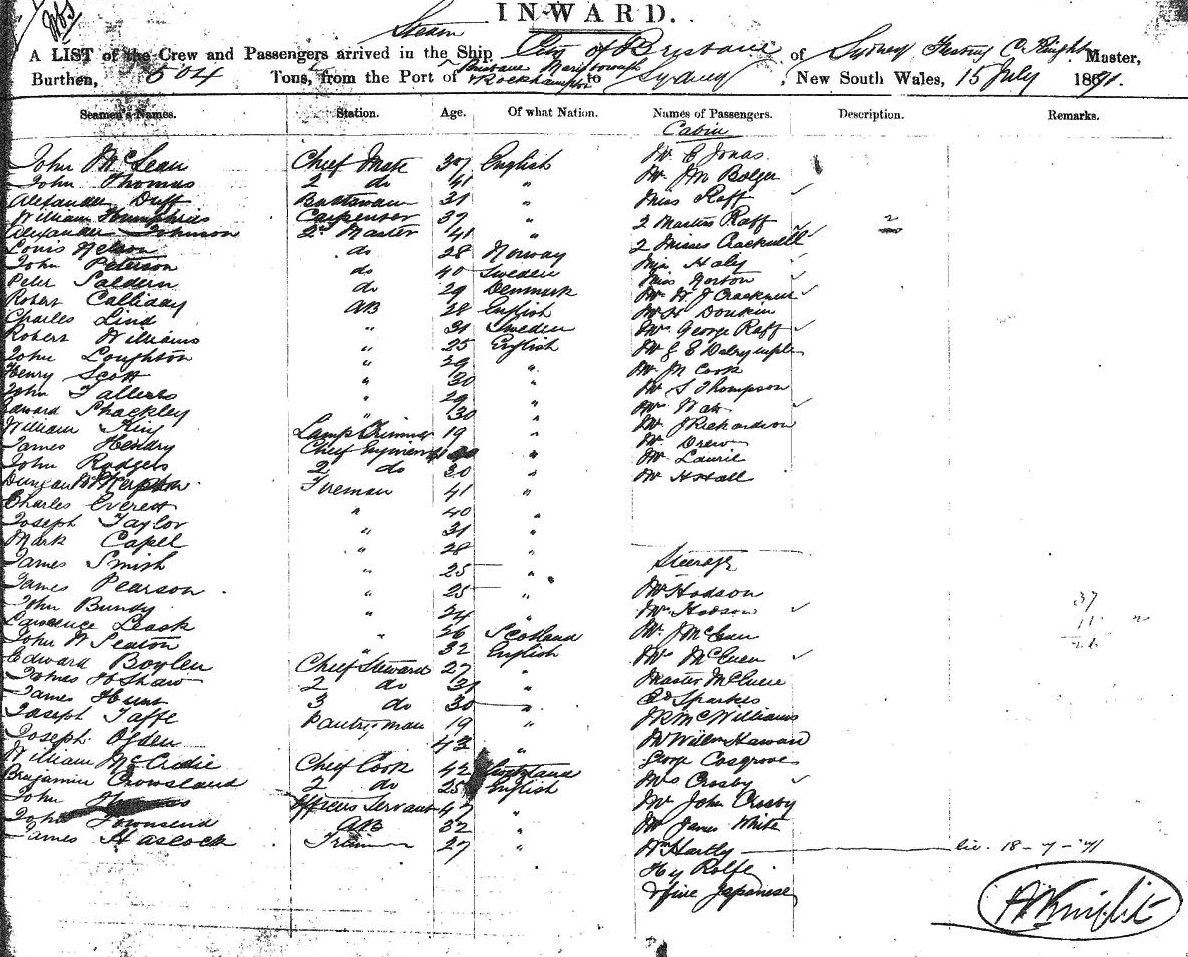 INWARD.
Steam
A LIST of the Crew and Passengers arrived in the Ship City of Brisbane of Sydney Knight Master,
Burthen, 504 Tons, from the Port of Brisbane Maryborough & Rockhampton to Sydney, New South Wales, 15 July 1871.
Seamen's Names. Station. Age. Of what Nation. Names of Passengers. Description. Remarks.
Cabin
John McLean Chief Mate 37 English Mr C Jonas
John Thomas 2 do 41 " Mr J M Bolger
Alexander Duff 31 " Miss Raff
William Humphries Carpenter 37 " 2 Masters Raff 2
Alexander Johnson 2nd Master 41 " 2 Misses Cracknell
Louis Nelson do 28 Norway Haley
John Peterson do 40 Sweden Miss Norton
Peter do 29 Denmark Mr W J Cracknell
Robert AB 28 English Donkin
Charles Lind " 31 Sweden Mrs George Raff
Robert Williams " 25 English Mr G E Dalrymple
John Loughton " 29 " Mr J M Cook
Henry Scott " 30 " Mr S Thompson
John " 29 " Mrs
Edward Shackley " 30 " Mr J Richardson
William King Lamp Trimmer 19 " Mr Drew
James Hendry Chief Engineer " Mr Laurie
John Rodgers 2 do 30 " Mr Hall
Duncan Fireman 41 "
Charles Everest " 40 "
Joseph Taylor " 31 "
Mark Capel " 28 " Steerage
James Smith " 25 "
James Pearson " 25 " Mr Hodson
John Bundy " 24 " Mrs Hodson 37
Lawrence Leask " 26 Scotland Mr J McEuen 11
John W Seaton " 32 English Mrs McEuen 26
Edward Boylen Chief Steward 27 " Master McEuen
James H Shaw 2 do 31 " Sparkes
James Hunt 3 do 30 " J R McWilliams
Joseph Taffe Pantryman 19 " Mr Willm
Joseph Ogden 43 " George Cosgrove
William McCredie Chief Cook 42 Scotland Mrs Crosby
Benjamin Crowsland 2 do 25 English Mr John Crosby
John Thomas Officers Servant 47 " Mr James White
John Townsend AB 32 " Wm Hartly liv. 18-7-71
James Hascock Trimmer 27 " Hy Rolfe
& five Japanese
Knight